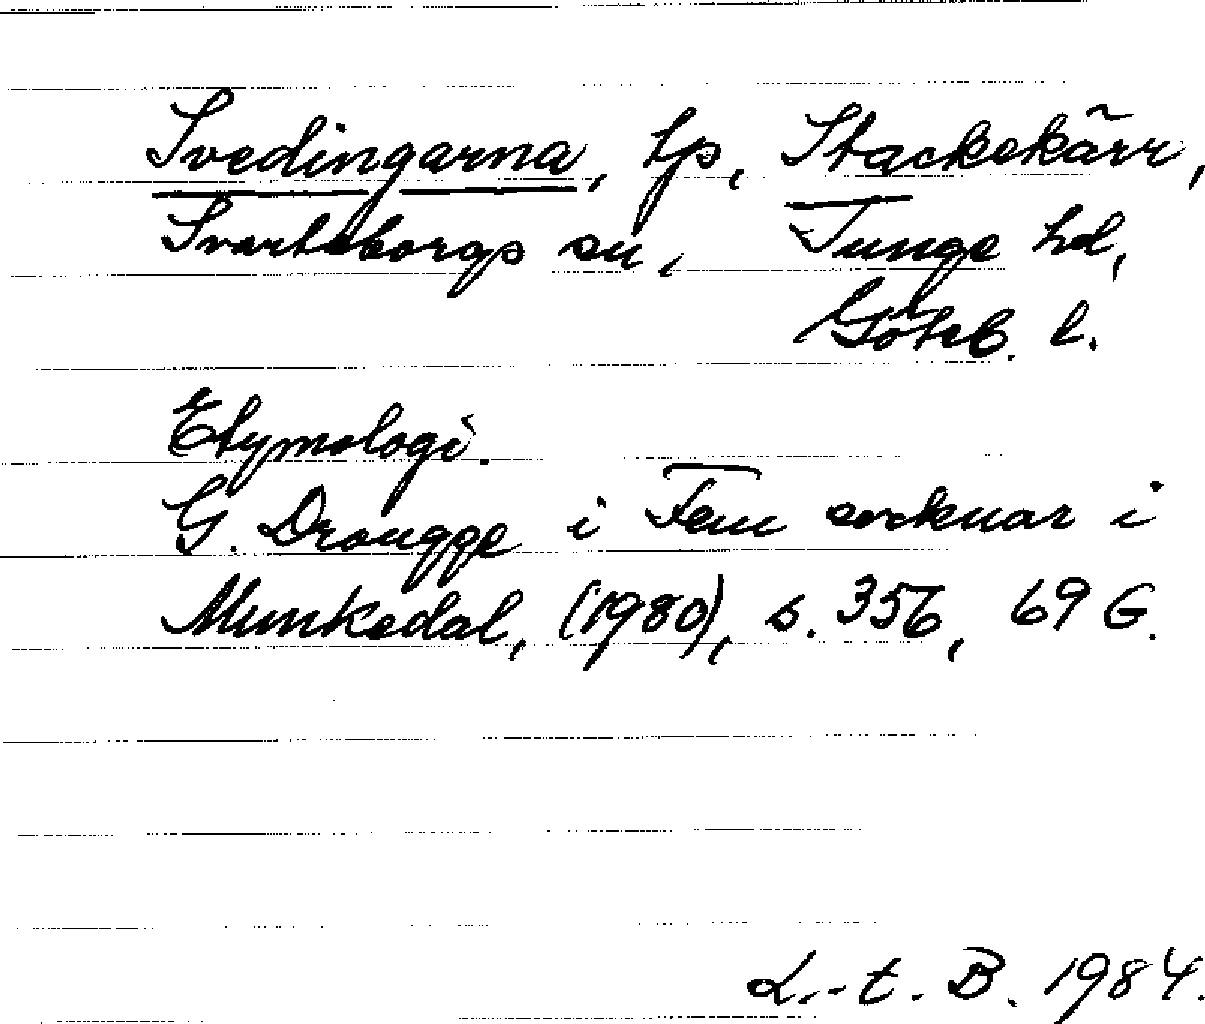 Svedingarna, tp, Stackekärr,
Svarteborgs sn, Tunge hd,
Göteb. l.
Etymologi.
G. Drougge i Fem socknar i
Munkedal, (1980), s. 356, 69 G.
L.-t. B. 1984.